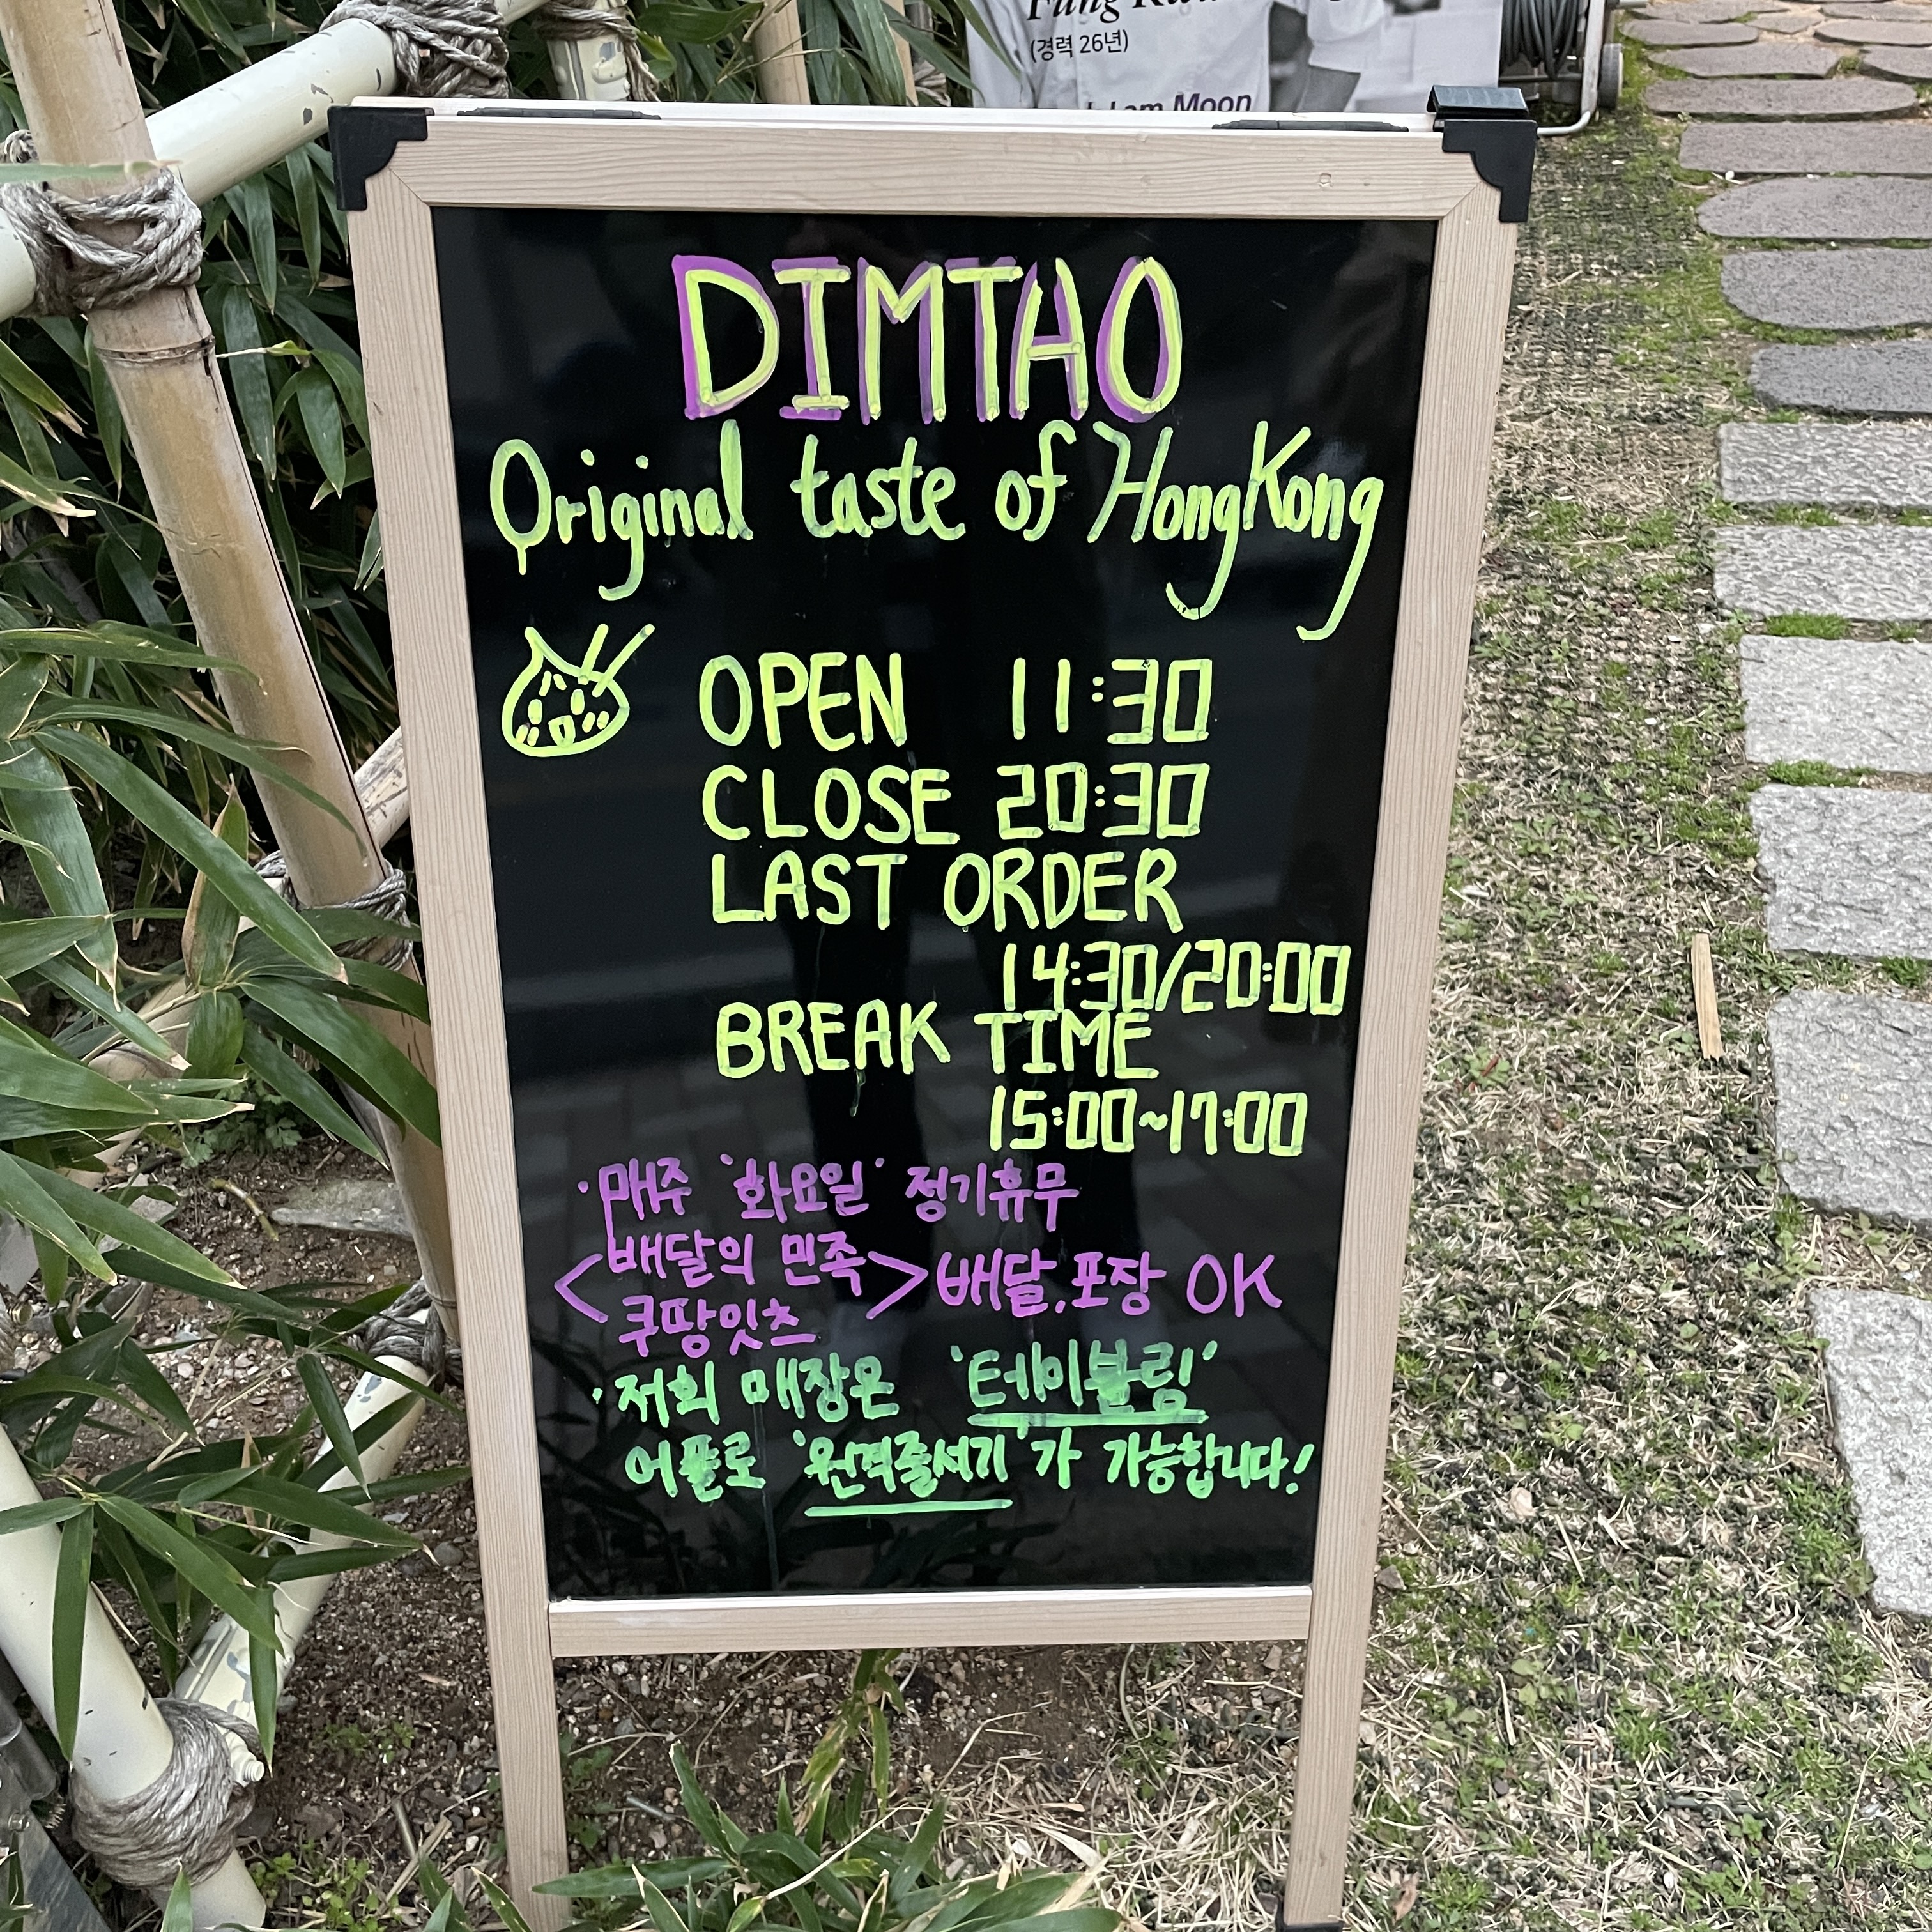 (경력 26년)
DIMTAO
Original taste of HongKong
OPEN 11:30
CLOSE 20:30
LAST ORDER
14:30/20:00
BREAK TIME
15:00~17:00
·매주 '화요일' 정기휴무
<배달의 민족
쿠팡잇츠> 배달,포장 OK
·저희 매장은 '테이블링'
어플로 '원격줄서기'가 가능합니다!